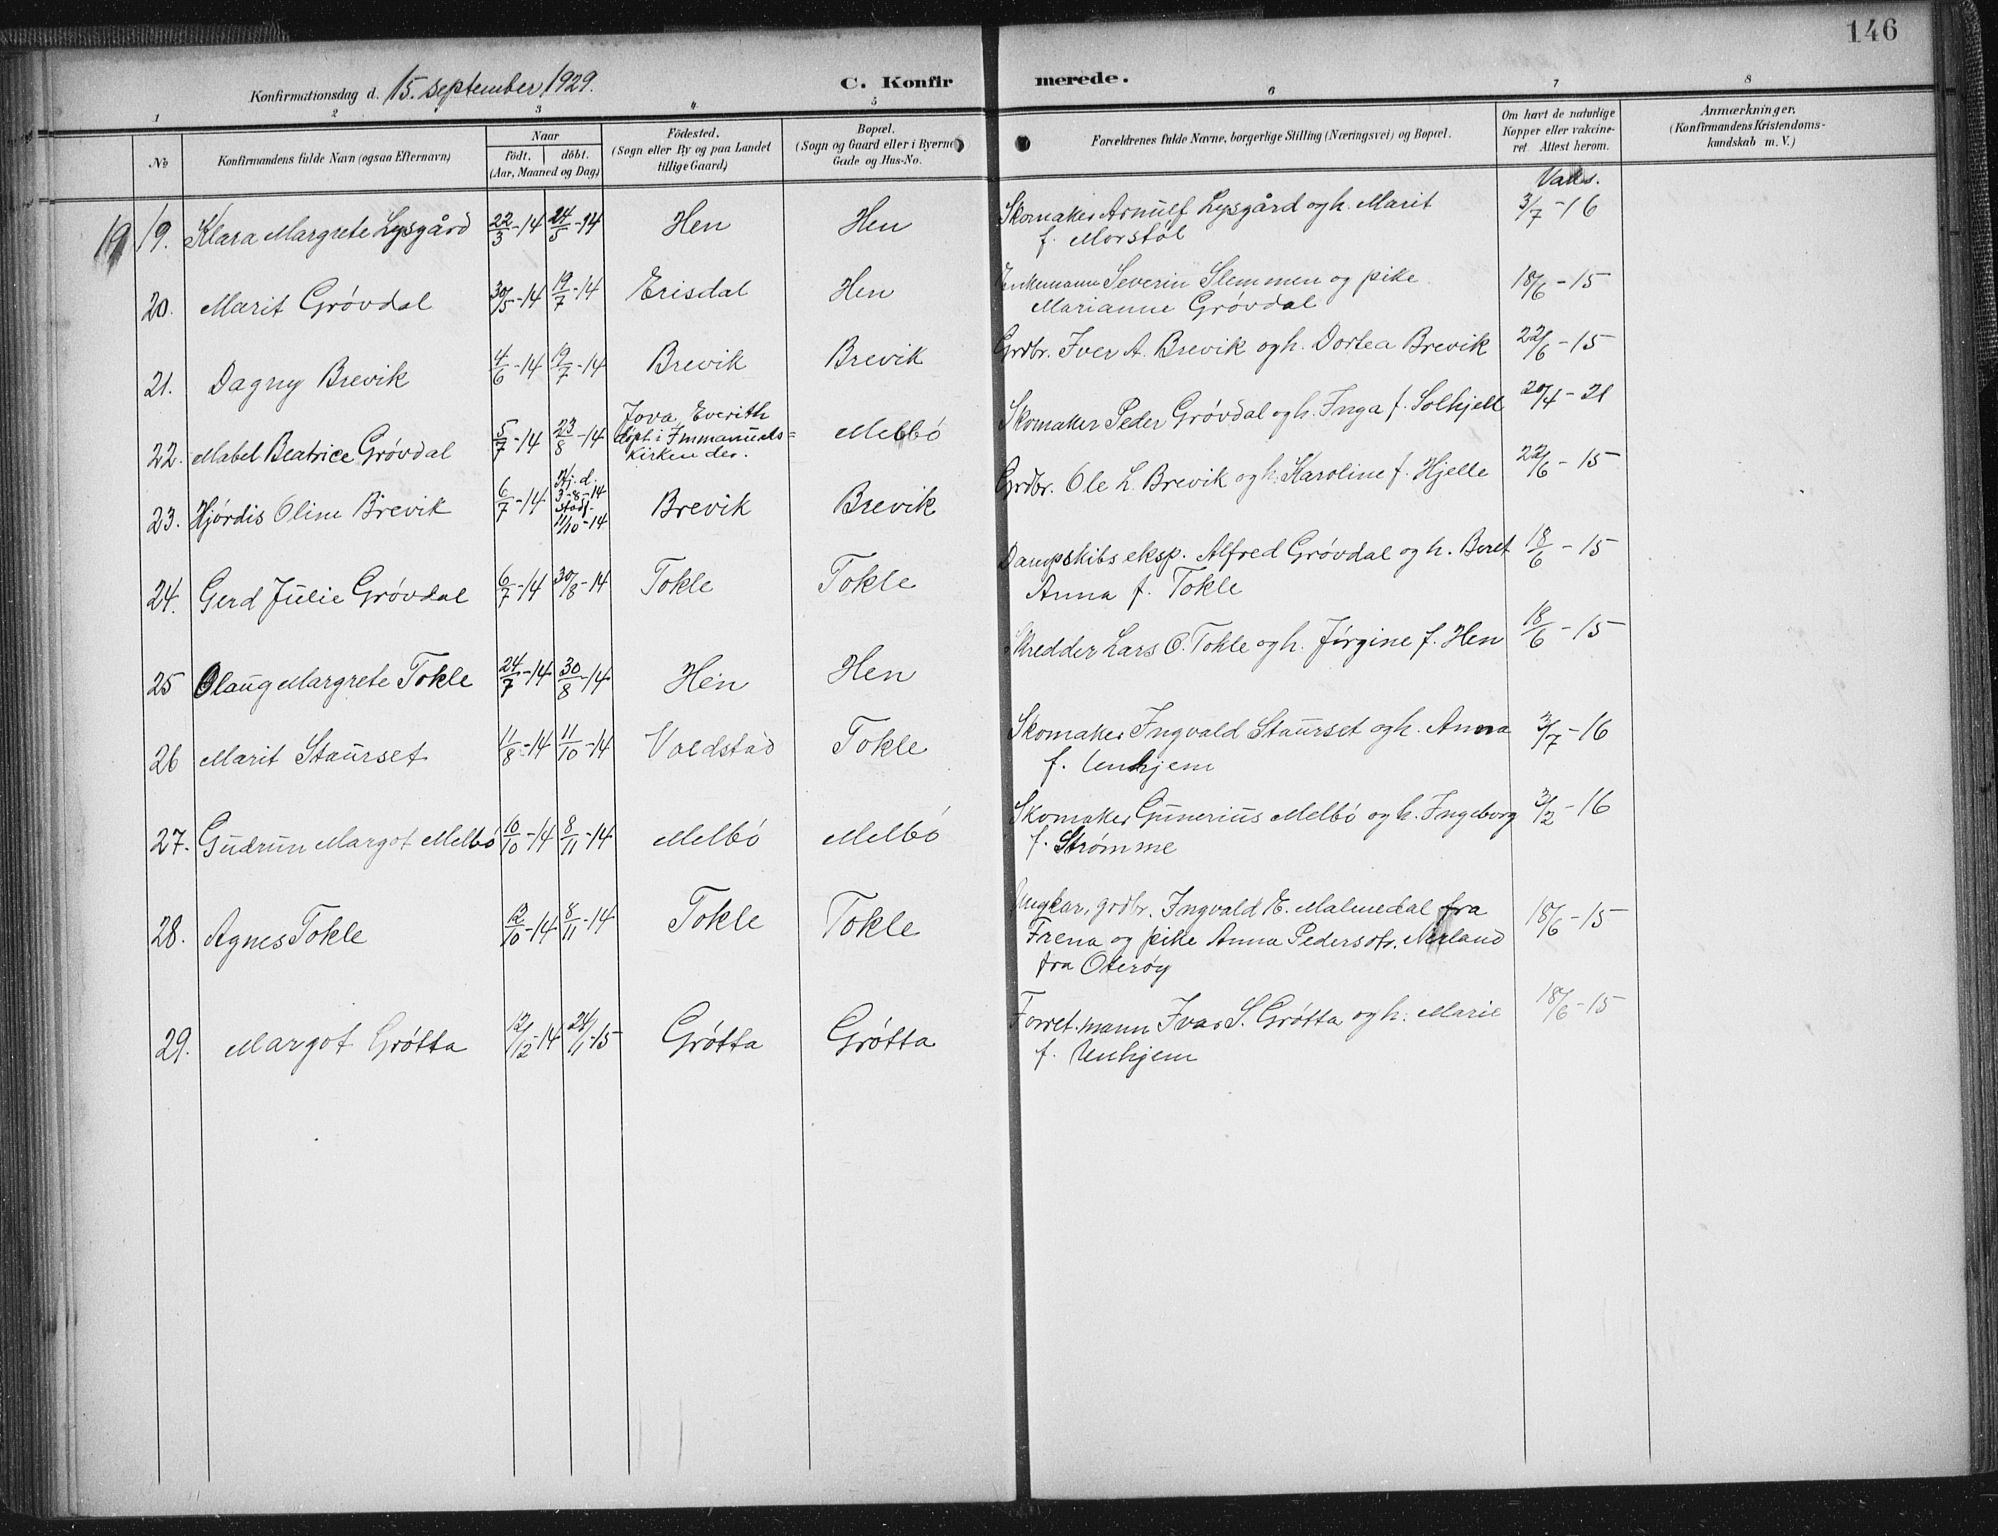 146
Konfirmationsdag d. 15. september 1929. C. Konfir merede.
1 2 3 4 5 6 7 8
№ Konfirmandens fulde Navn (ogsaa Efternavn) Naar födt. döbt. (Aar, Maaned og Dag) Födested. (Sogn eller By og paa Landet tillige Gaard) Bopæl. (Sogn og Gaard eller i Byerne Gade og Hus-No. Forældrenes fulde Navne, borgerlige Stilling (Næringsvei) og Bopæl. Om havt de naturlige Kopper eller vakcineret. Attest herom. Anmærkninger. (Konfirmandens Kristendomskundskab m. V.)
19 19. Klara Margrete Lysgård 22/3-14 24/5-14 Hen Hen Skomaker Arnulf Lysgård og h. Marit 3/7-16
f. Morstøl
20. Marit Grøvdal 30/5-14 19/7-14 Erisdal Hen Enkemann Severin Slemmen og pike 18/6-15
Marianne Grøvdal
21. Dagny Brevik 4/6-14 19/7-14 Brevik Brevik Grdbr. Iver A. Brevik og h. Dortea Brevik 22/6-15
22. Mabel Beatrice Grøvdal 5/7-14 23/8-14 Jova, Everith Melbø Skomaker Peder Grøvdal og h. Inga f. Solhjell 20/4-21
døpt i Immanuels=
kirken der.
23. Hjørdis Oline Brevik 6/7-14 Hj. d. 3-8-14 Brevik Brevik Grdbr. Ole L. Brevik og h. Karoline f. Hjelle 22/6-15
stadf.
11/10-14
24. Gerd Julie Grøvdal 6/7-14 30/8-14 Tokle Tokle Dampskibseksp. Alfred Grøvdal og h. Beret 18/6-15
Anna f. Tokle
25 Olaug Margrete Tokle 24/7-14 30/8-14 Hen Hen Skredder Lars O. Tokle og h. Jørgine f. Hen 18/6-15
26 Marit Staurset 11/8-14 11/10-14 Voldstad Tokle Skomaker Ingvald Staurset og h. Anna 3/7-16
f. Unhjem
27. Gudrun Margot Melbø 10/10-14 8/11-14 Melbø Melbø Skomaker Gunerius Melbø og h. Ingeborg 3/2-16
f. Strømme
28. Agnes Tokle 12/10-14 8/11-14 Tokle Tokle Ungkar, grdbr. Ingvald E. Malmedal fra 18/6-15
Frena og pike Anna Pedersdtr. Nerland
fra Oterøy
29. Margot Grøtta 12/12-14 24/1-15 Grøtta Grøtta Forret.mann Ivar S. Grøtta og h. Marie 18/6-15
f. Unhjem